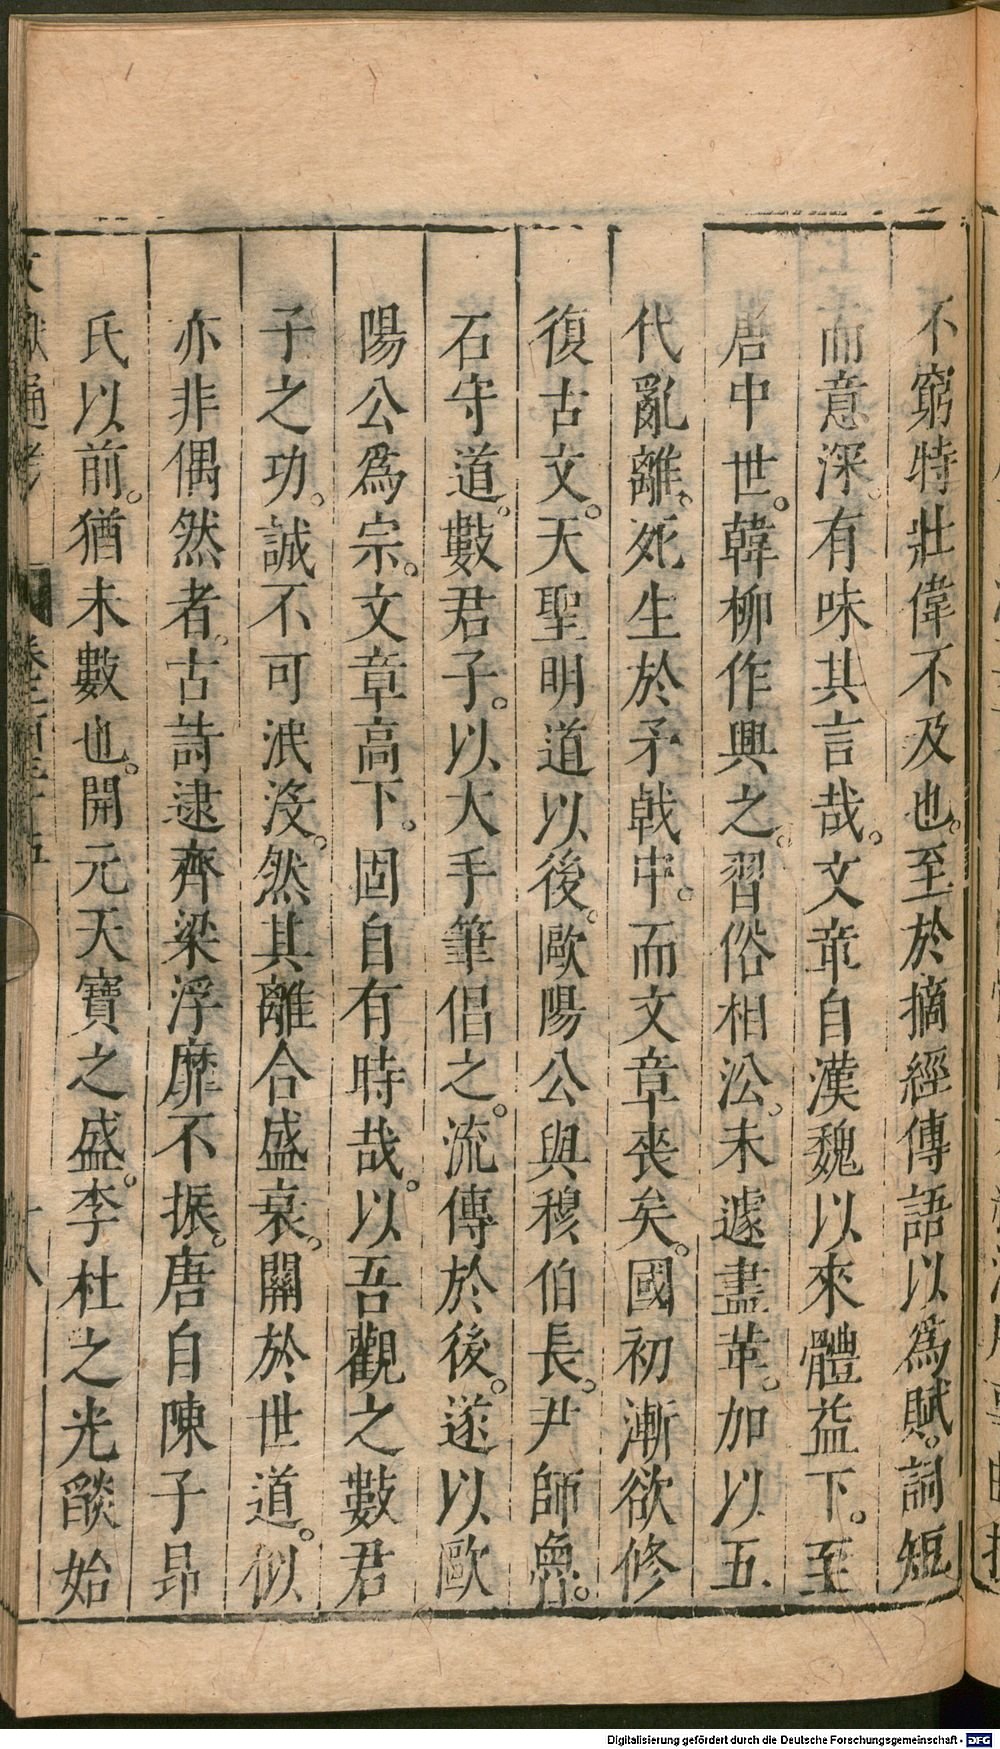 不窮特壯偉不及也。至於摘經傳語以爲賦。詞短
而意深。有味其言哉。文章自漢魏以來體益下。至
唐中世。韓柳作興之。習俗相㳂。未遽盡革。加以五
代亂離。死生於矛戟中。而文章喪矣。國初漸欲修
復古文。天聖明道以後。歐陽公與穆伯長。尹師魯。
石守道。數君子。以大手筆倡之。流傳於後。遂以歐
陽公爲宗。文章高下。固自有時哉。以吾觀之數君
子之功。誠不可泯沒。然其離合盛衰。關於世道。似
亦非偶然者。古詩逮齊梁浮靡不振。唐自陳子昻
氏以前。猶未數也。開元天寶之盛。李杜之光燄始
文獻通考 卷二百三十五 十八
Digitalisierung gefördert durch die Deutsche Forschungsgemeinschaft - DFG